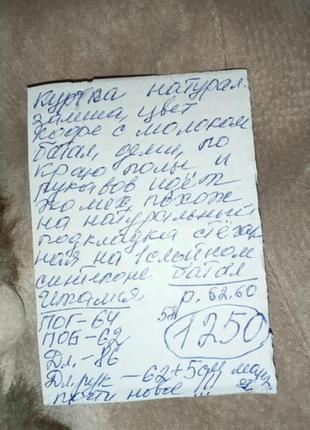 куртка натурал.
замша, цвет
кофе с молоком
батал, деми, по
краю полы и
рукавов идёт
эко мех, похож
на натуральный
подкладка стёган
ная на 1 слойном
синтепоне батал
р. 62.60
ПОГ-64
1250
ПОБ-62
Дл.-86
Дл.рук-62+5см
почти новое !!!